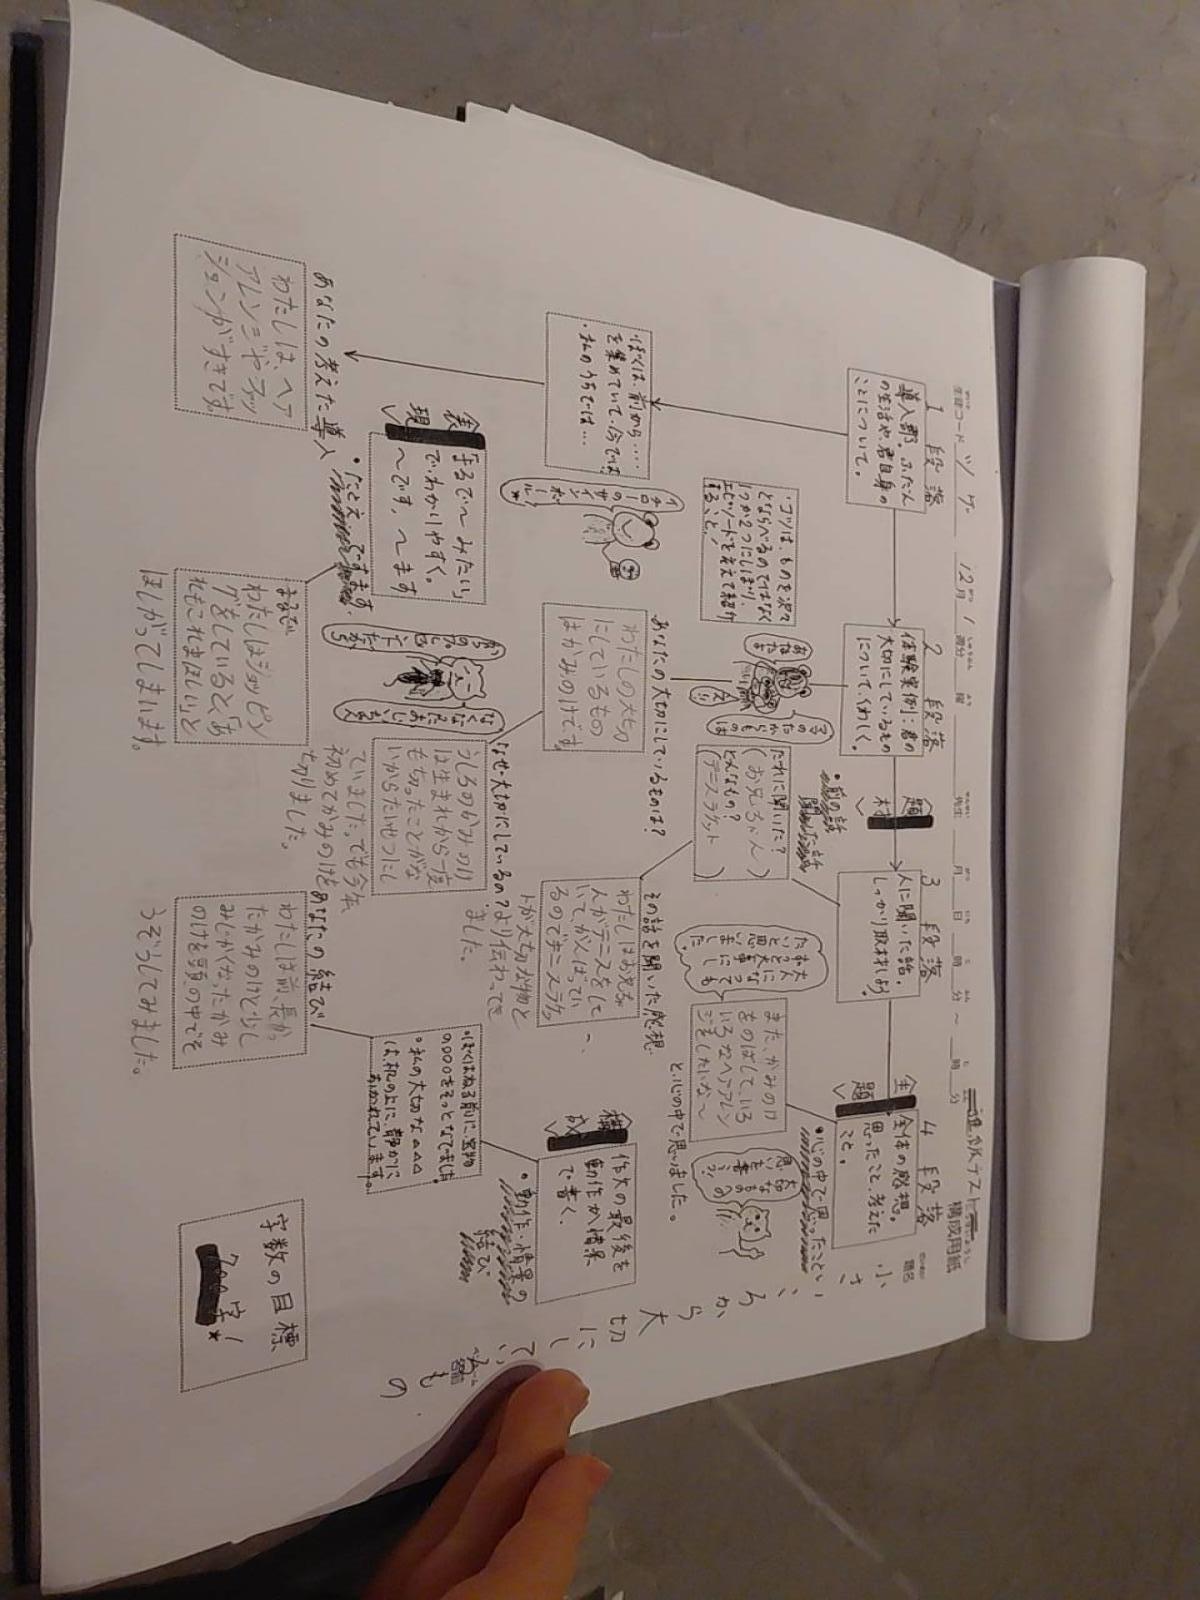 進級テスト
構成用紙
生徒コード
12月 1週
題名 小さいころから大切にしているもの
1段落
導入部。ふだんの生活や、君自身のことについて。
ぼくは、前から…
を集めていて、今では
・私のうちでは…
あなたの考えた導入
わたしは、ヘア
アレンジやファッ
ションがすきです。
2段落
体験実例：君の
大切にしているもの
について、くわしく。
・コツは、ものを次々
とならべるのではなく
1つか2つにしぼり、
エピソードを交えて紹介
すること！
イチローのサインボール★
あなたの大切にしているものは？
わたしの大切
にしているもの
はかみのけです。
なぜ、大切にしているの？
うしろのかみのけ
は生まれから一度
も切ったことがな
いからたいせつにし
ていました。でも今年、
初めてかみのけを
切りました。
表現
まるで〜みたい
でわかりやすく。
〜です、〜ます
・たとえ
まるで
わたしはショッピン
グをしていると、「あ
れもこれもほしい」と
ほしがってしまいます。
題材
3段落
人に聞いた話。
しっかり取材しよう。
・前の話
聞いた話
だれに聞いた？
（お兄ちゃん）
どんなもの？
（テニスラケット）
その話を聞いた感想
わたしはお兄ちゃ
んがテニスをして
いて、がんばってい
るのでテニスラケッ
トが大切な物と
より伝わってき
ました。
主題
4段落
全体の感想。
思ったこと、考えた
こと。
・心の中で思ったこと
また、かみのけ
をのばして、いろ
いろなヘアアレン
ジをしたいな〜
と、心の中で思いました。
構成
作文の最後を
動作か情景
で書く。
・動作・情景の
結び
・ぼくはねる前に、宝物
の○○○をそっとなでました。
・私の大切な△△△
は、机の上に、静かに
おかれています。
あなたの結び
わたしは前、長かっ
たかみのけと少し
みじかくなったかみ
のけを頭の中でそ
うぞうしてみました。
字数の目標
700字！★